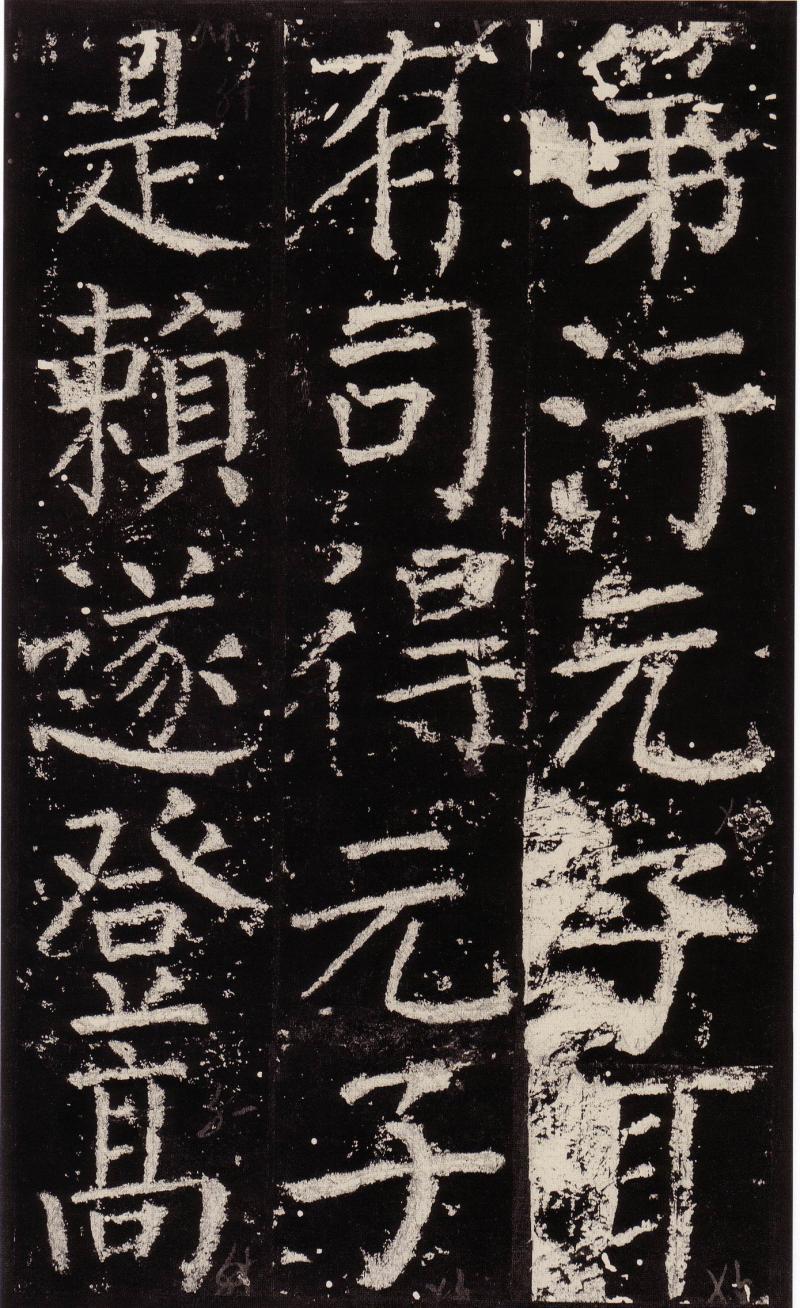 第汙元子耳
有司得元子
是賴遂登高